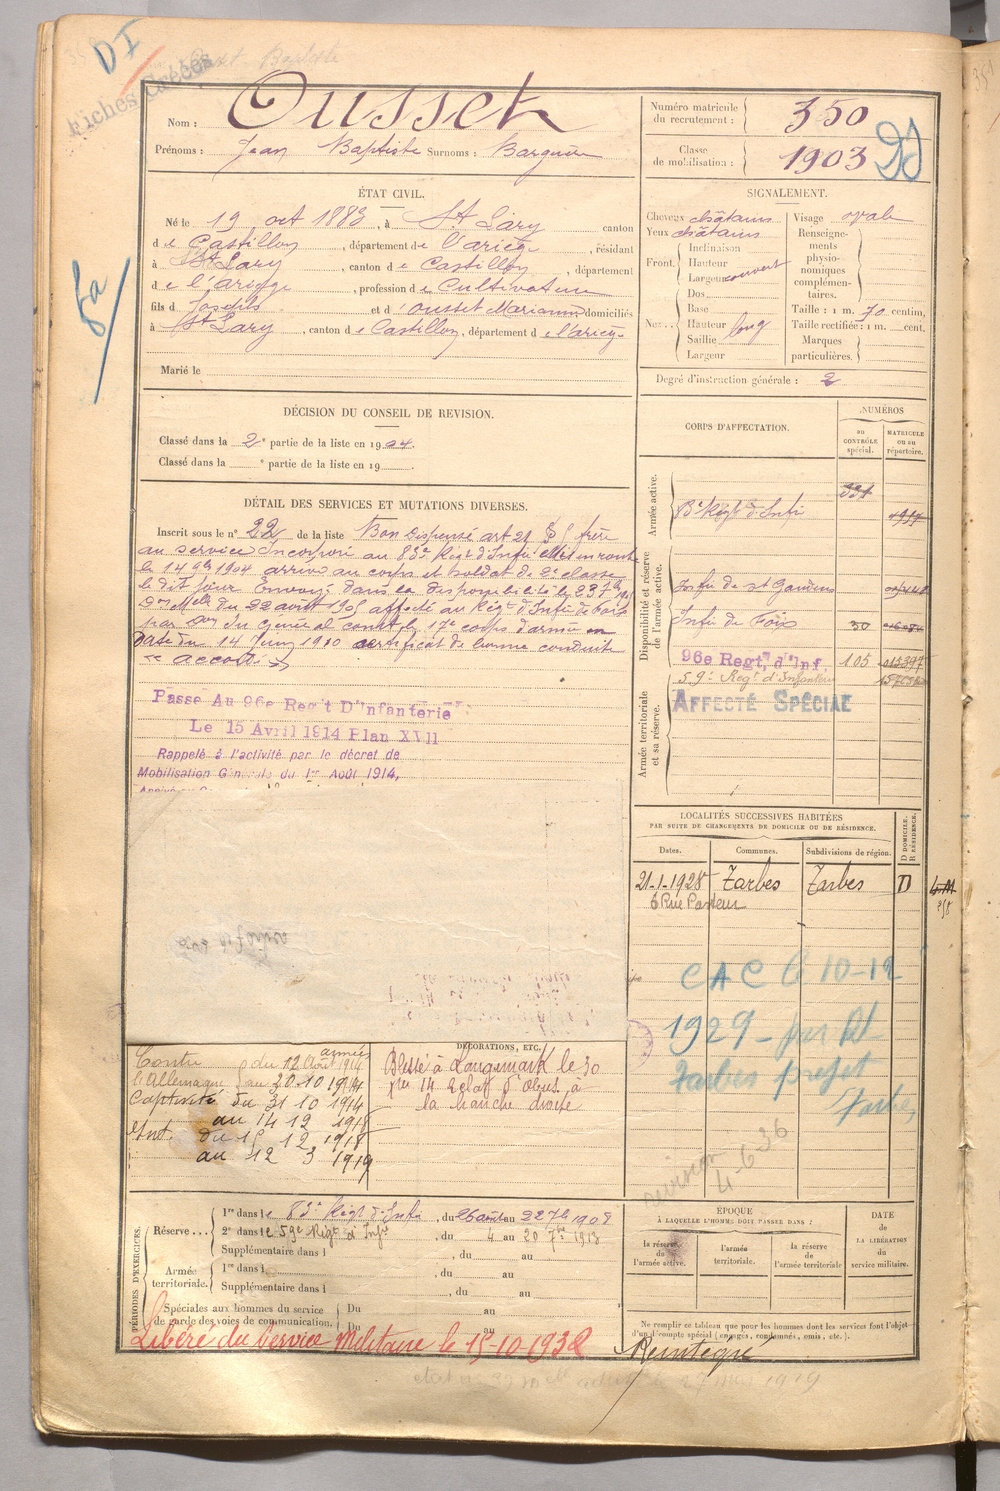 DI
Fiches Créées
Nom : Ousset
Prénoms : Jean Baptiste Surnoms : Barguin
Numéro matricule du recrutement : 350
Classe de mobilisation : 1903
ÉTAT CIVIL.
Né le 19 oct 1883, à St Lary canton
de Castillon, département de l'ariège, résidant
à St Lary, canton de Castillon, département
de l'ariège, profession de Cultivateur
fils d Joseph et d'Ousset Marianne domiciliés
à St Lary, canton de Castillon, département d l'ariège
Marié le
SIGNALEMENT.
Cheveux châtains
Yeux châtains
Front. Inclinaison
Hauteur
Largeur couvert
Nez... Dos
Base
Hauteur long
Saillie
Largeur
Visage ovale
Renseignements physionomiques complémentaires.
Taille : 1 m. 70 centim.
Taille rectifiée : 1 m. cent.
Marques particulières.
Degré d'instruction générale : 2
DÉCISION DU CONSEIL DE REVISION.
Classé dans la 2e partie de la liste en 1904.
Classé dans la e partie de la liste en 19
CORPS D'AFFECTATION.
NUMÉROS
au CONTRÔLE spécial.
MATRICULE ou au répertoire.
Armée active.
Regt d'Infie
Disponibilité et réserve de l'armée active.
Infie de St Gaudens
Infie de Foix 30
96e Regt d'Inf. 105
59e Regt d'Infanterie
Armée territoriale et sa réserve.
AFFECTÉ SPÉCIAL
DÉTAIL DES SERVICES ET MUTATIONS DIVERSES.
Inscrit sous le n° 22 de la liste Bon Dispensé art 21 § frère
au service Incorporé au 83e Régt d'Infie Mis en route
le 14 9bre 1904 arrivé au corps et soldat de 2e classe
le dit jour Envoyé dans la disponibilité le 23 7bre
du 22 août 1905 affecté au Régt d'Infie de Foix
par don du Général comt le 17e corps d'armée en
date du 14 Juin 1910 certificat de bonne conduite
« accordé »
Passé Au 96e Regt D'Infanterie
Le 15 Avril 1914 Plan XVII
Rappelé à l'activité par le décret de
Mobilisation Générale du 1er Août 1914,
LOCALITÉS SUCCESSIVES HABITÉES
PAR SUITE DE CHANGEMENTS DE DOMICILE OU DE RÉSIDENCE.
Dates.
Communes.
Subdivisions de région.
D DOMICILE. R RÉSIDENCE.
21-1-1928 Tarbes Tarbes D
6 Rue Pasteur
CAC le 10-12
1929
Tarbes préfet
Tarbes
4-6-36
DÉCORATIONS, ETC.
Contre
l'Allemagne du 12 Août 1914
au 30 10 1914
Captivité du 31 10 1914
au 14 12 1918
Int. du 15 12 1918
au 12 3 1919
Blessé à Langemark le 30
14 Eclat d'obus à
la hanche droite
PÉRIODES D'EXERCICES.
Réserve...
1re dans le 83e Régt d'Infie, du 26 août au 22 7bre 1908
2e dans le 59e Régt d'Infie, du 4 au 20 7bre 1913
Supplémentaire dans l , du au
Armée territoriale.
1re dans l , du au
Supplémentaire dans l , du au
Spéciales aux hommes du service de garde des voies de communication.
Du au
Du au
ÉPOQUE
À LAQUELLE L'HOMME DOIT PASSER DANS :
la réserve de l'armée active.
l'armée territoriale.
la réserve de l'armée territoriale
DATE de LA LIBÉRATION du service militaire.
Ne remplir ce tableau que pour les hommes dont les services font l'objet
d'un décompte spécial (engagés, condamnés, omis, etc.).
Libéré du Service Militaire le 15-10-1932
Réintégré